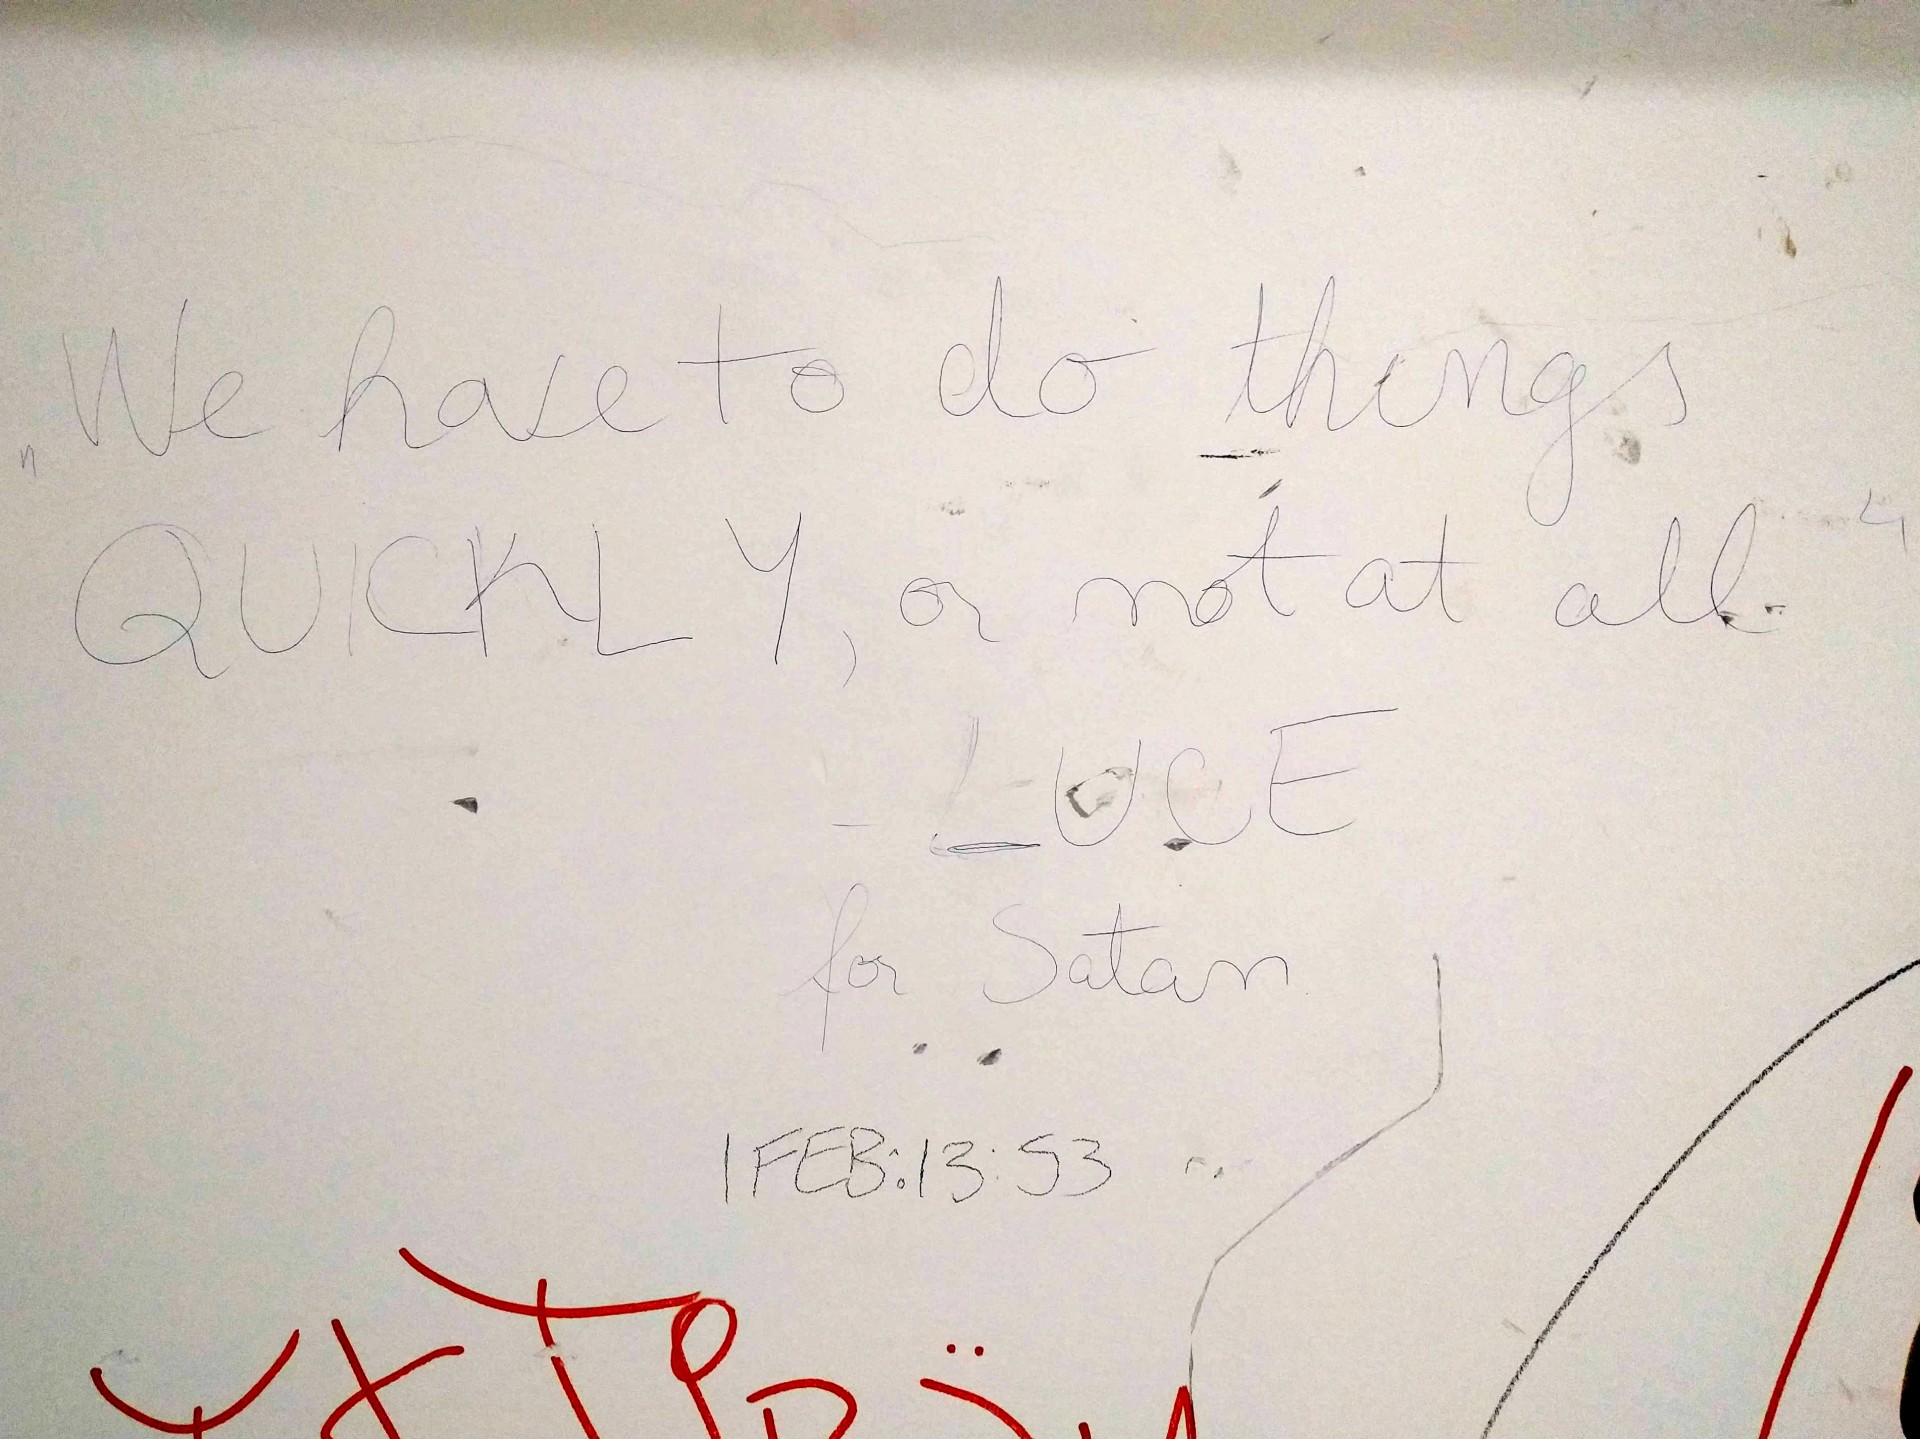 „We have to do things
QUICKLY, or not at all."
- LUCE
for Satan
1FEB:13:53